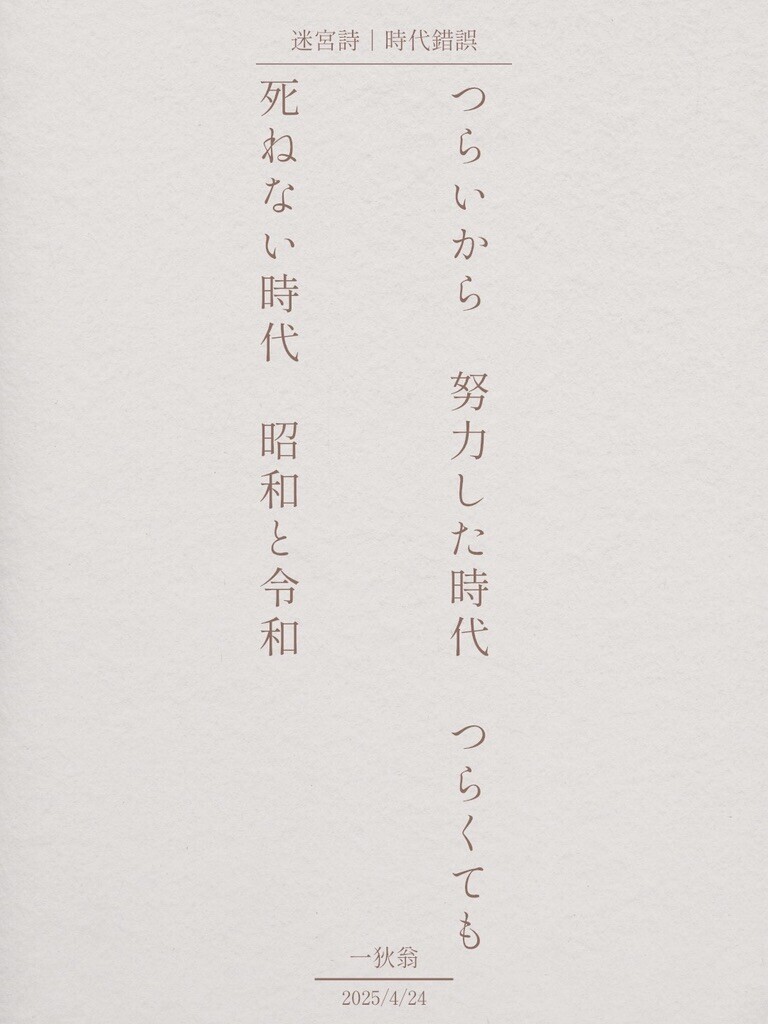 迷宮詩｜時代錯誤
つらいから　努力した時代　つらくても
死ねない時代　昭和と令和
一狄翁
2025/4/24